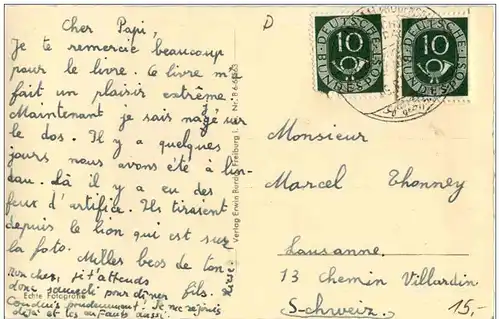 Cher Papi,
Je te remercie beaucoup
pour le livre. Ce livre me
fait un plaisir extrême.
Maintenant je sais nager sur
le dos. Il y a quelques
jours nous avons été à lin-
dau. Là il y a eu des
feux d'artifice. Ils tiraient
depuis le lion qui est sur
la foto. Milles becs de ton
fils.
Mon cher, je t'attends
donc samedi pour dîner
Conduis prudemment! Je me réjouis
déjà et les enfants aussi.
Echte Fotografie
Verlag Erwin Burda, Freiburg i.
DEUTSCHE BUNDESPOST
10
DEUTSCHE BUNDESPOST
10
Monsieur
Marcel Thonney
Lausanne.
13 Chemin Villardin
Schweiz.
15,-